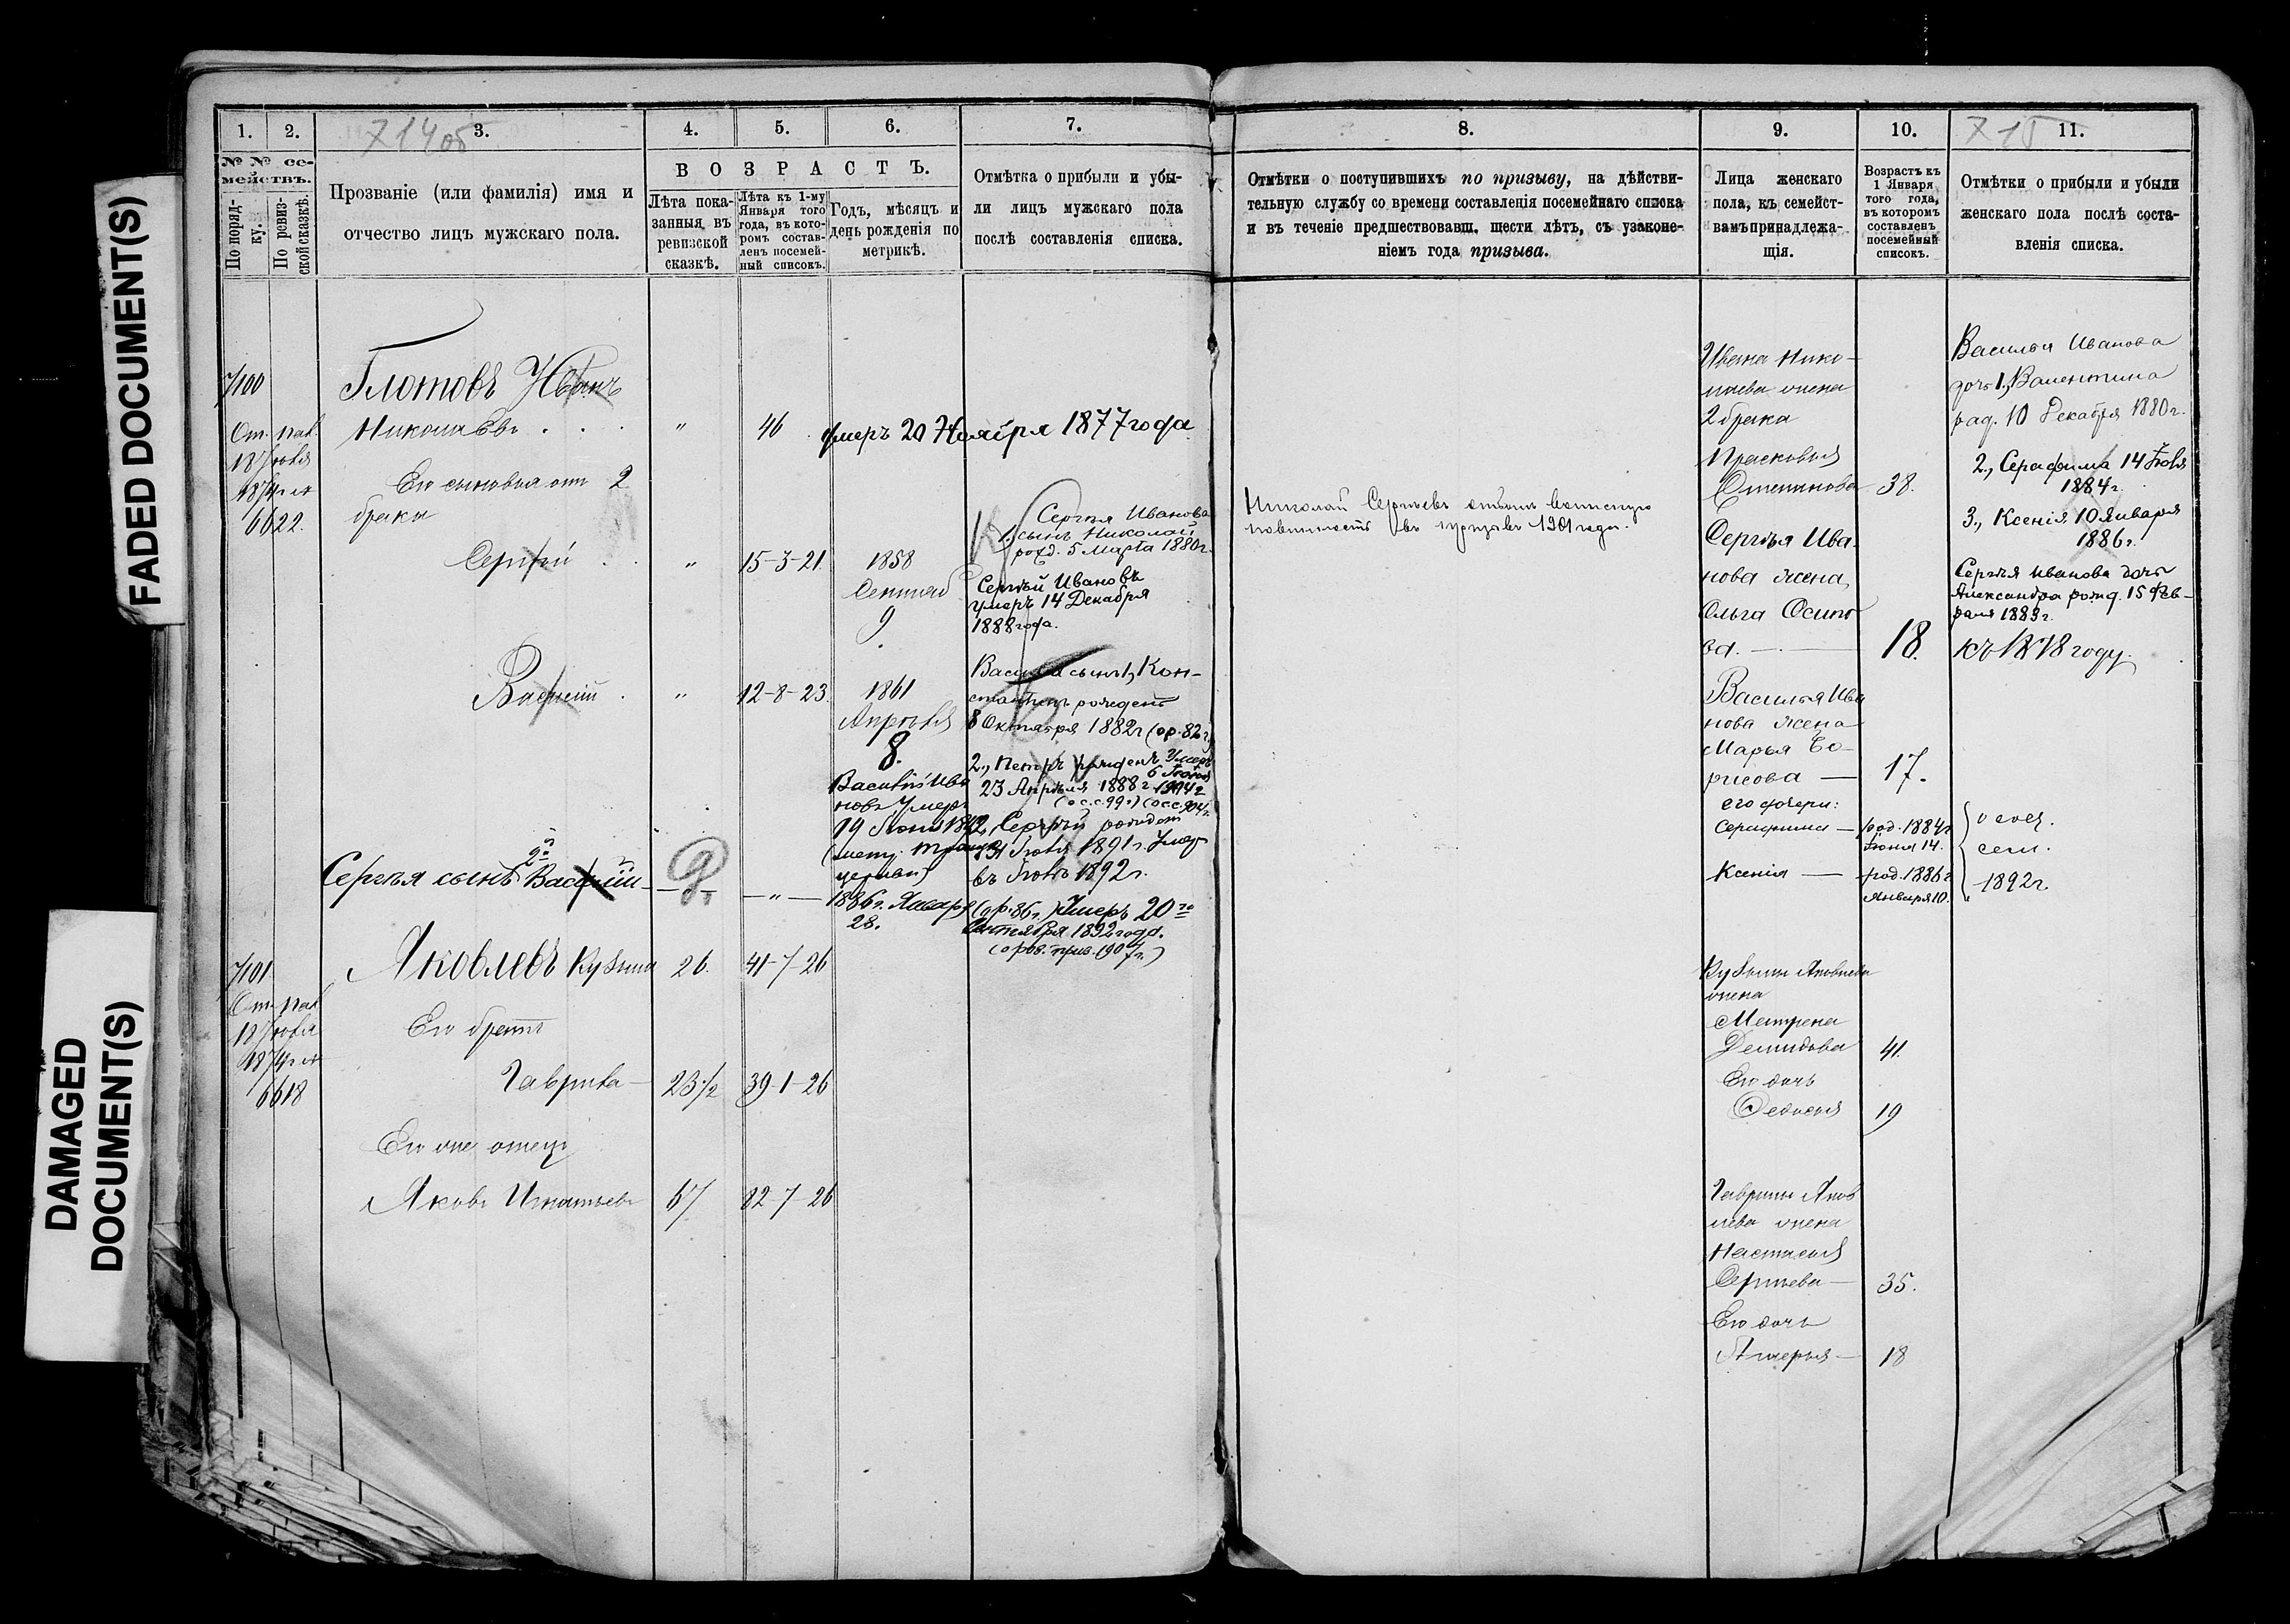 FADED DOCUMENT(S)
DAMAGED
DOCUMENT(S)
1.
2.
3.
4.
5.
6.
7.
№ № се-
мействъ.
По поряд-
ку.
По ревиз-
ской сказкѣ.
Прозваніе (или фамилія) имя и
отчество лицъ мужскаго пола.
ВОЗРАСТЪ.
Лѣта пока-
занныя въ
ревизской
сказкѣ.
Лѣта къ 1-му
Января того
года, въ кото-
ромъ состав-
ленъ посемей-
ный списокъ.
Годъ, мѣсяцъ и
день рожденія по
метрикѣ.
Отмѣтка о прибыли и убы-
ли лицъ мужскаго пола
послѣ составленія списка.
7100
Глотовъ Иванъ
Николаевъ . . . „ 46 умеръ 20 Ноября 1877 года
1874
6622.
Его сыновья отъ 2
брака
Сергѣй . . „ 15-3-21 1858
9
Сергѣя Иванова
1, сынъ Николай
рожд. 5 Марта 1880 г.
Сергѣй Ивановъ
умеръ 14 Декабря
1888 года.
Василій . „ 12-8-23. 1861
Апрѣля
8.
Василія сынъ 1, Кон-
стантинъ рожденъ
8 Октября 1882 г (ор. 82 г.)
2., Петръ рожденъ
23 Апрѣля 1888 г.
Умеръ
6 Іюня
1904 г
Василій Ива
новъ Умеръ
19 Іюня
церкви)
Сергѣй рожденъ
Іюля 1891 г. Умер
въ Іюлѣ 1892 г.
Сергѣя сынъ 2й Василій — „ —
1886 г. Января
28.
(ор. 86 г.) Умеръ 20го
Сентября 1892 года.
7101
Яковлевъ Кузьма 26. 41-7-26
1874
6618
Его братъ
Гаврила — 23½ 39-1-26
Ихъ отецъ
Яковъ Игнатьевъ 67 82-7-26
8.
9.
10.
11.
Отмѣтки о поступившихъ по призыву, на дѣйстви-
тельную службу со времени составленія посемейнаго списка
и въ теченіе предшествовавш. шести лѣтъ, съ узаконе-
ніемъ года призыва.
Лица женскаго
пола, къ семейст-
вамъ принадлежа-
щія.
Возрастъ къ
1 Января
того года,
въ которомъ
составленъ
посемейный
списокъ.
Отмѣтки о прибыли и убыли
женскаго пола послѣ соста-
вленія списка.
Николай Сергѣевъ отбылъ воинскую
повинность въ призывъ 1901 года.
Ивана Нико-
лаева жена
2 брака
Прасковья
Степанова 38.
Сергѣя Ива-
нова жена
Ольга Осипо
ва. — 18. къ 1878 году.
Василья Ива
нова жена
Марья Бо-
рисова — 17.
его дочери:
Серафима — род. 1884 г
Іюня 14.
Ксенія — род. 1886 г
Января 10.
сем.
1892 г.
Василья Иванова
дочь 1., Валентина
род. 10 Декабря 1880 г.
2., Серафима 14 Іюня
1884 г.
3., Ксенія 10 Января
1886 г.
Сергѣя Иванова дочь
Александра рожд. 15 Фев-
раля 1883 г.
Кузьмы Яковлева
жена
Матрена
Демидова 41.
Его дочь
Федосья 19
Гаврилы Яков
лева жена
Настасья
Сергѣева — 35.
Его дочь
18